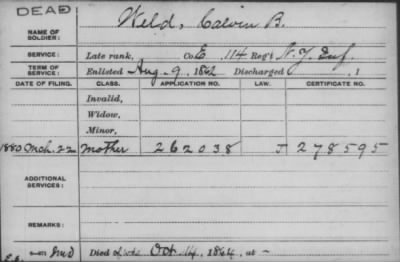 DEAD
NAME OF SOLDIER: Weld, Calvin B.
SERVICE: Late rank, Co. E, 114 Reg't N.Y. Inf.
TERM OF SERVICE: Enlisted Aug. 9, 1862 Discharged , 1
DATE OF FILING. CLASS. APPLICATION NO. LAW. CERTIFICATE NO.
Invalid,
Widow,
Minor,
1880 Mch. 22 Mother 262038 J 278595
ADDITIONAL SERVICES:
REMARKS:
Died of wds Oct. 14, 1864, at —